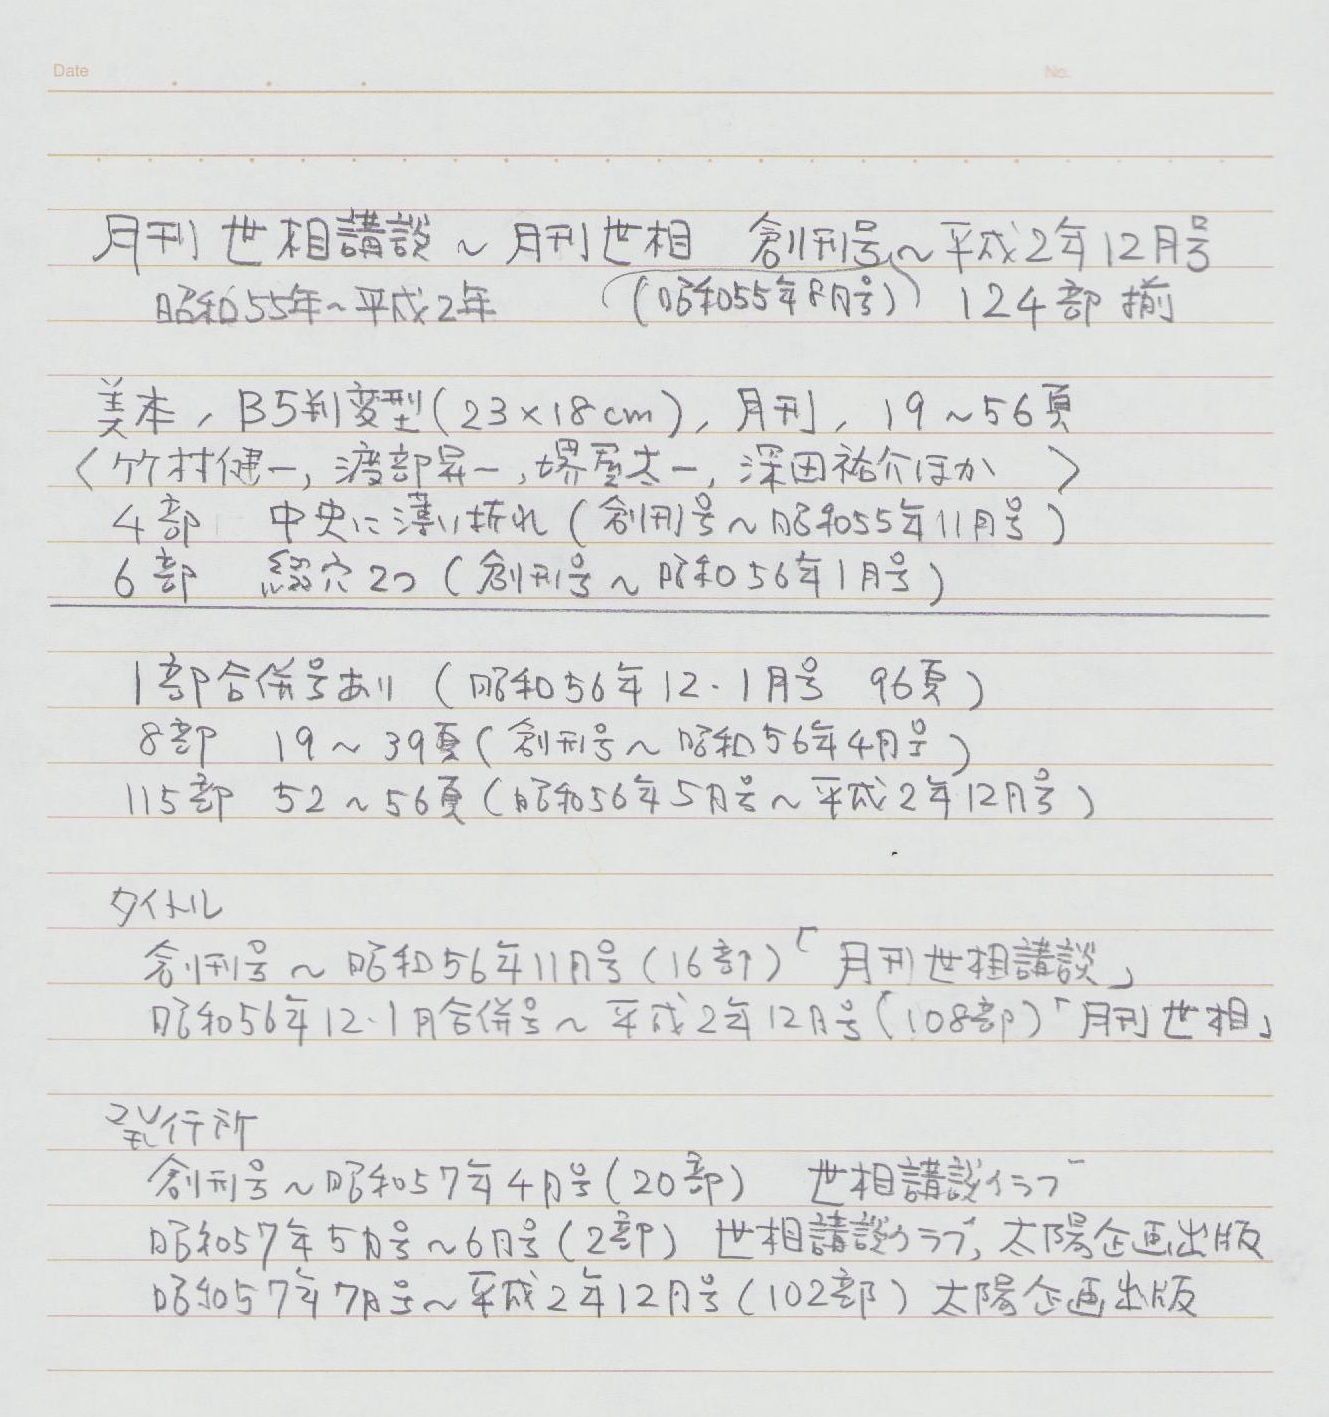 Date
No.
月刊 世相講談 ～ 月刊世相 創刊号～平成2年12月号
昭和55年～平成2年 (昭和55年8月号) 124部 揃
美本, B5判変型(23×18cm), 月刊, 19～56頁
〈竹村健一, 渡部昇一, 堺屋太一, 深田祐介ほか 〉
4部 中央に薄い折れ(創刊号～昭和55年11月号)
6部 綴穴2つ(創刊号～昭和56年1月号)
1部合併号あり(昭和56年12・1月号 96頁)
8部 19～39頁(創刊号～昭和56年4月号)
115部 52～56頁(昭和56年5月号～平成2年12月号)
タイトル
創刊号～昭和56年11月号(16部)「月刊世相講談」
昭和56年12・1月合併号～平成2年12月号(108部)「月刊世相」
発行所
創刊号～昭和57年4月号(20部) 世相講談クラブ
昭和57年5月号～6月号(2部) 世相講談クラブ, 太陽企画出版
昭和57年7月号～平成2年12月号(102部) 太陽企画出版